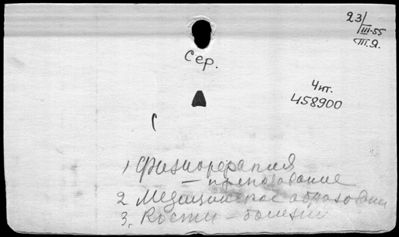 23/III-55
П.Я.
Сер.
Чит.
458900
1 Физиотерапия
— преподавание
2 Медицинское образование
3, Кости – болезни